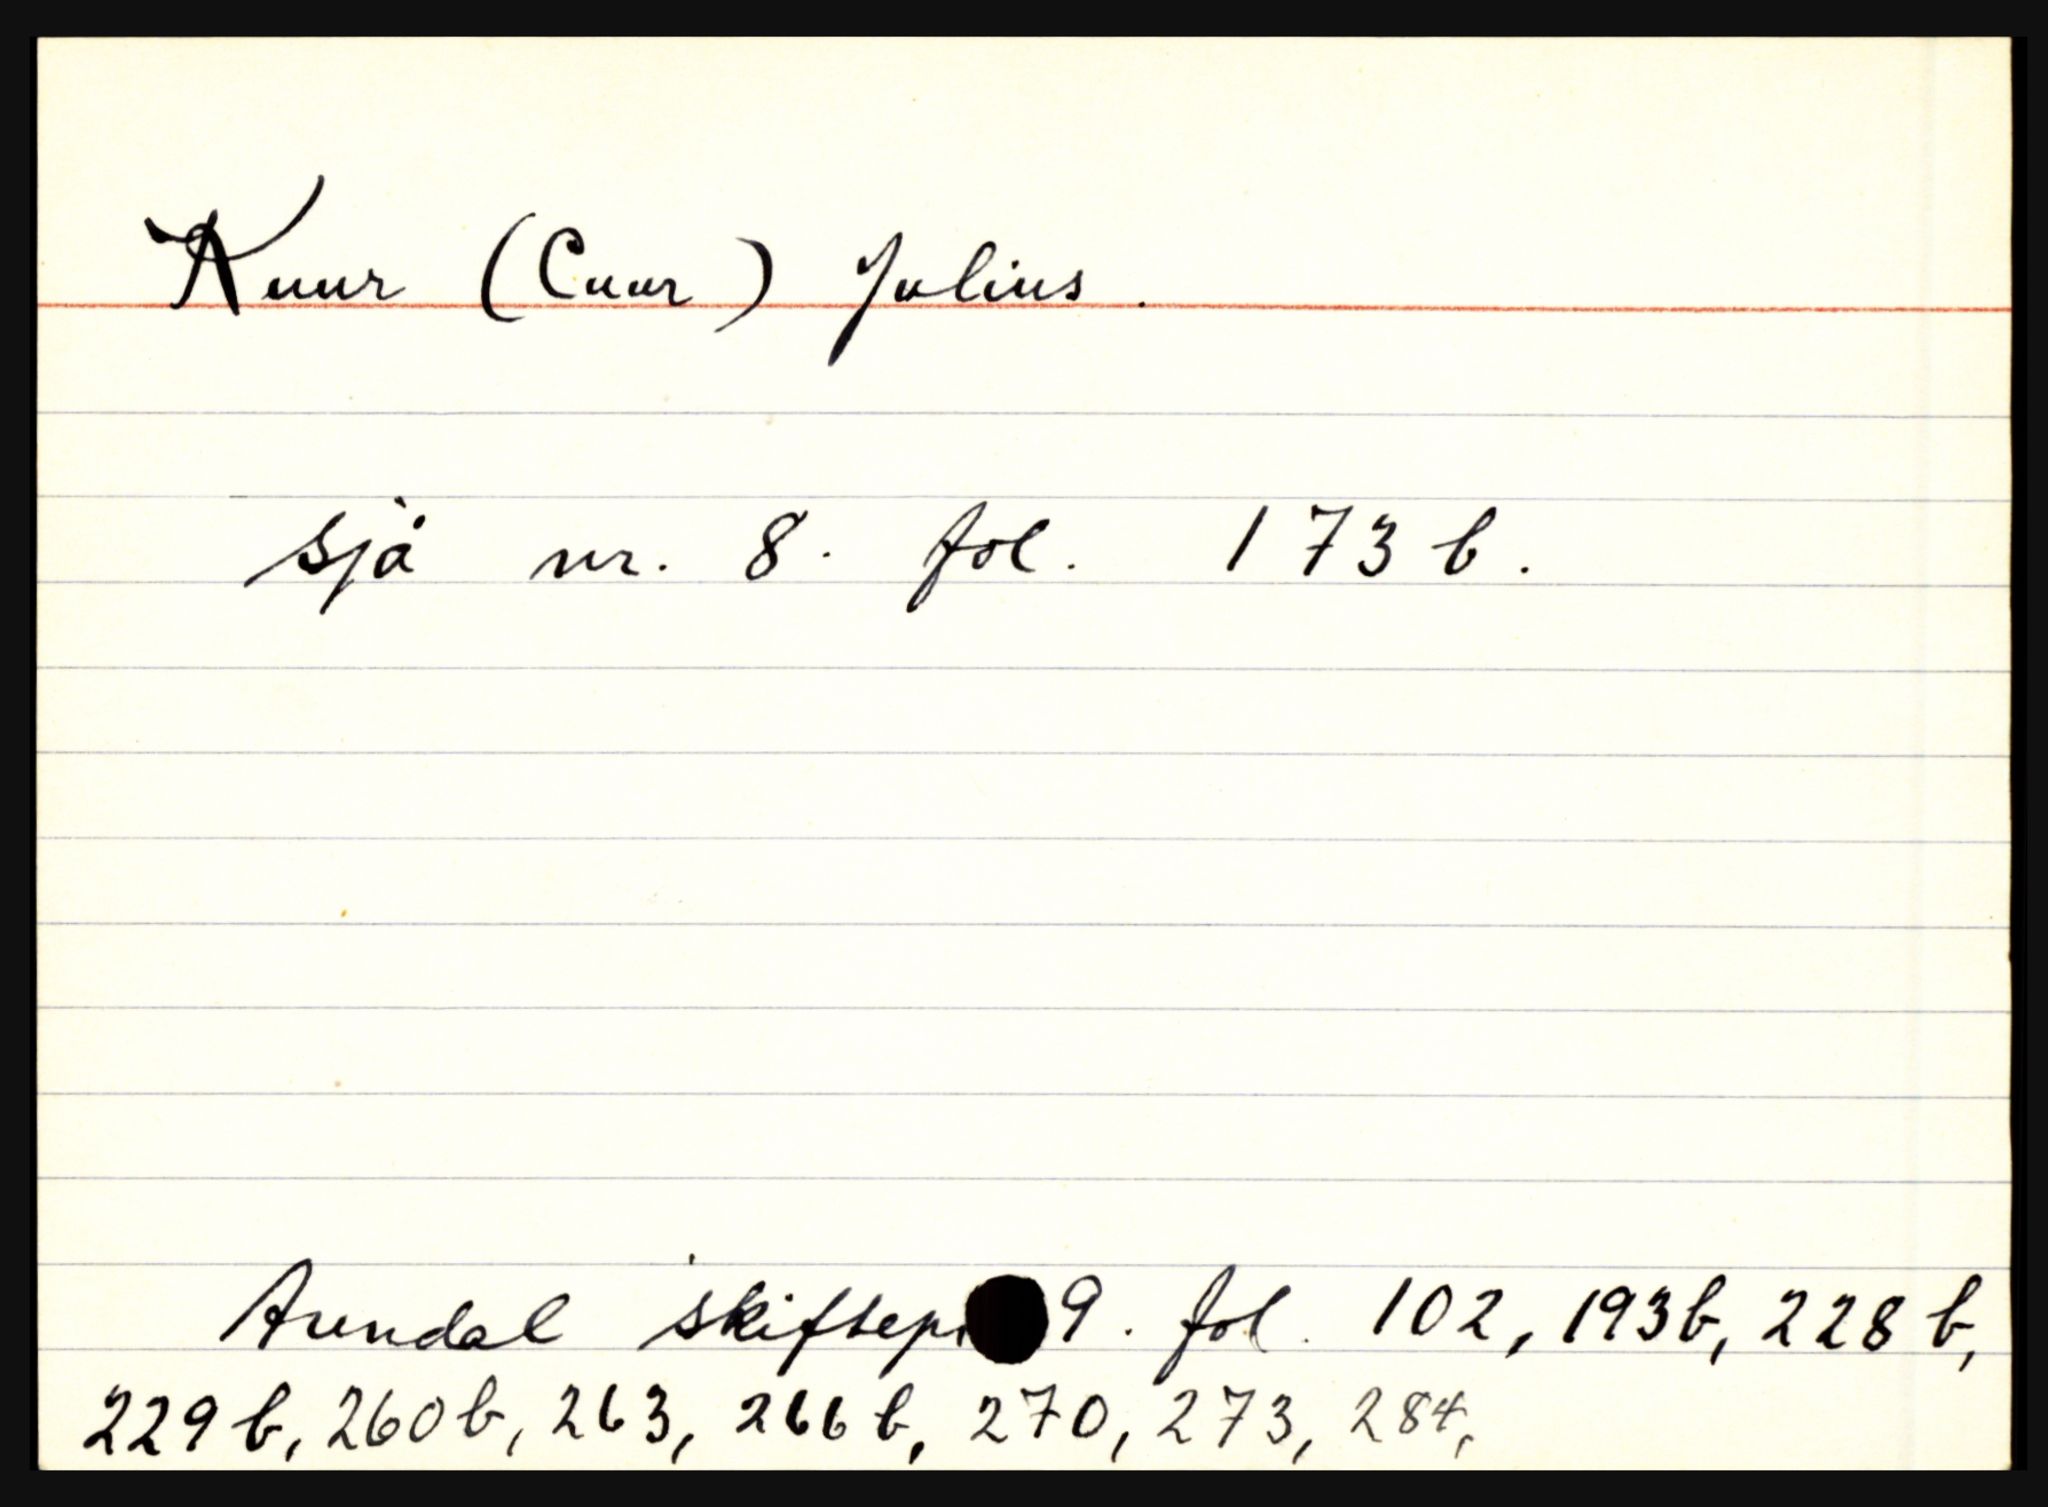 Kuur (Cuur) Julius.
sjå nr. 8. fol. 173 b.
Arendal 9. fol. 102, 193b, 228 b,
229 b, 260 b, 263, 266 b, 270, 273, 284,